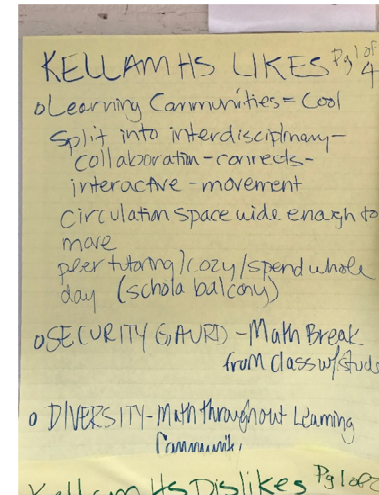 KELLAM HS LIKES Pg 1 of 4
o Learning Communities = Cool
Split into interdisciplinary -
collaboration - connects -
interactive - movement
circulation space wide enough to
move
peer tutoring / cozy / spend whole
day (schola balcony)
o SECURITY - Math Break
from class w/
o DIVERSITY - Math throughout Learning
Kellam HS Dislikes Pg 1 of